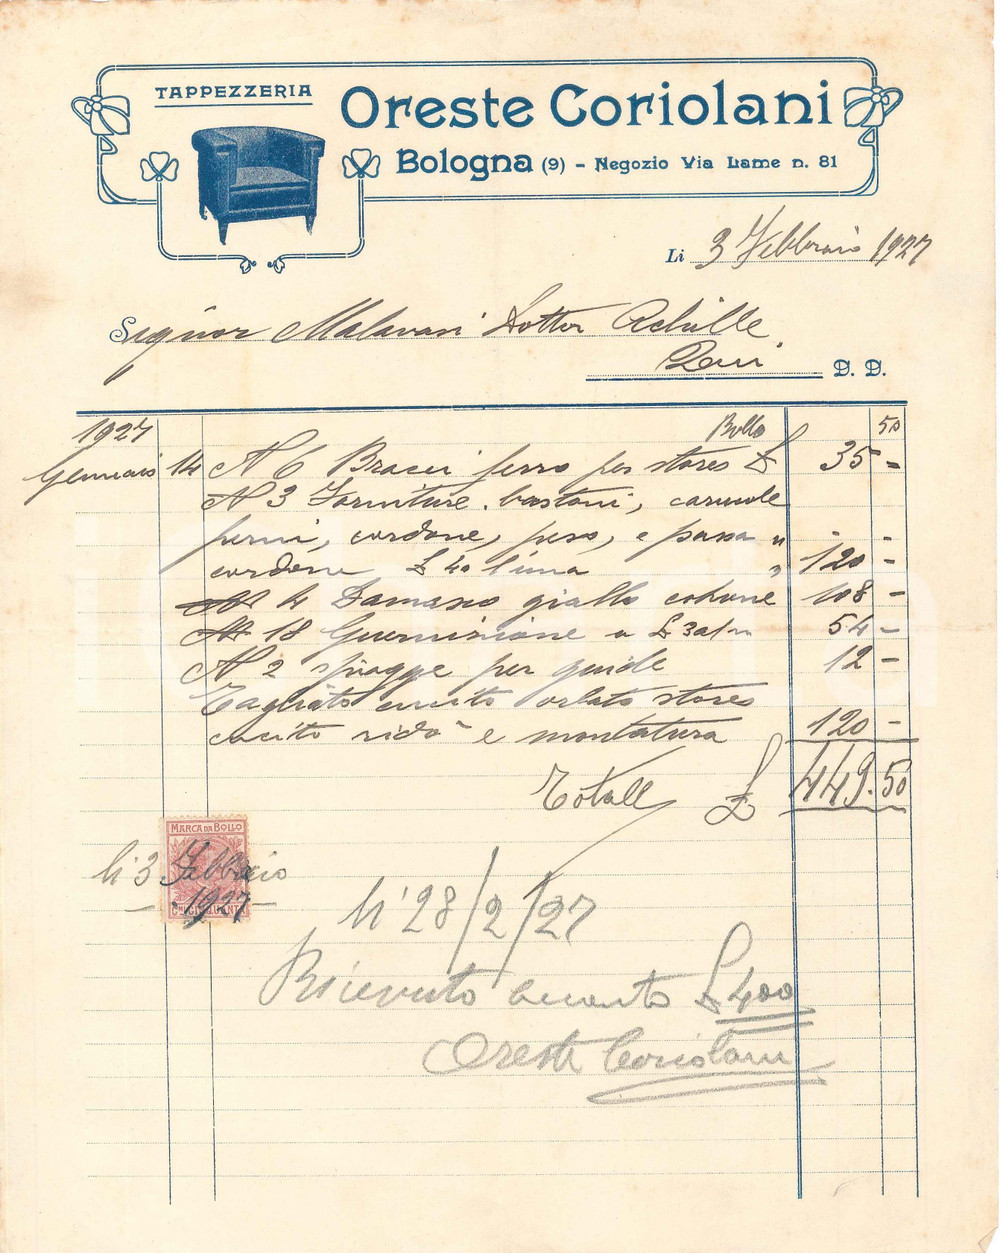 TAPPEZZERIA
Oreste Coriolani
Bologna (9) - Negozio Via Lame n. 81
Li 3 Febbraio 1927
Signor Malavasi Dottor Achille
D. D.
1927 Bollo 50
Gennaio 14 N 6 Bracci ferro per stores £ 35 -
N 3 Forniture bastoni, carucole
perni, cordone, peso, e passa " -
cordone £ 40 l'una " 120 -
4 Damasco giallo cotone 108 -
18 Guernizione a £ 3 al m 54 -
N 2 spiagge per guide 12 -
Tagliato cucito orlato stores
cucito ridò e montatura 120 -
Totale £ 449.50
MARCA DA BOLLO
li 3 Febbraio
1927
CENT. CINQUANTA
li 28/2/27
Ricevuto acconto £ 400
Oreste Coriolani